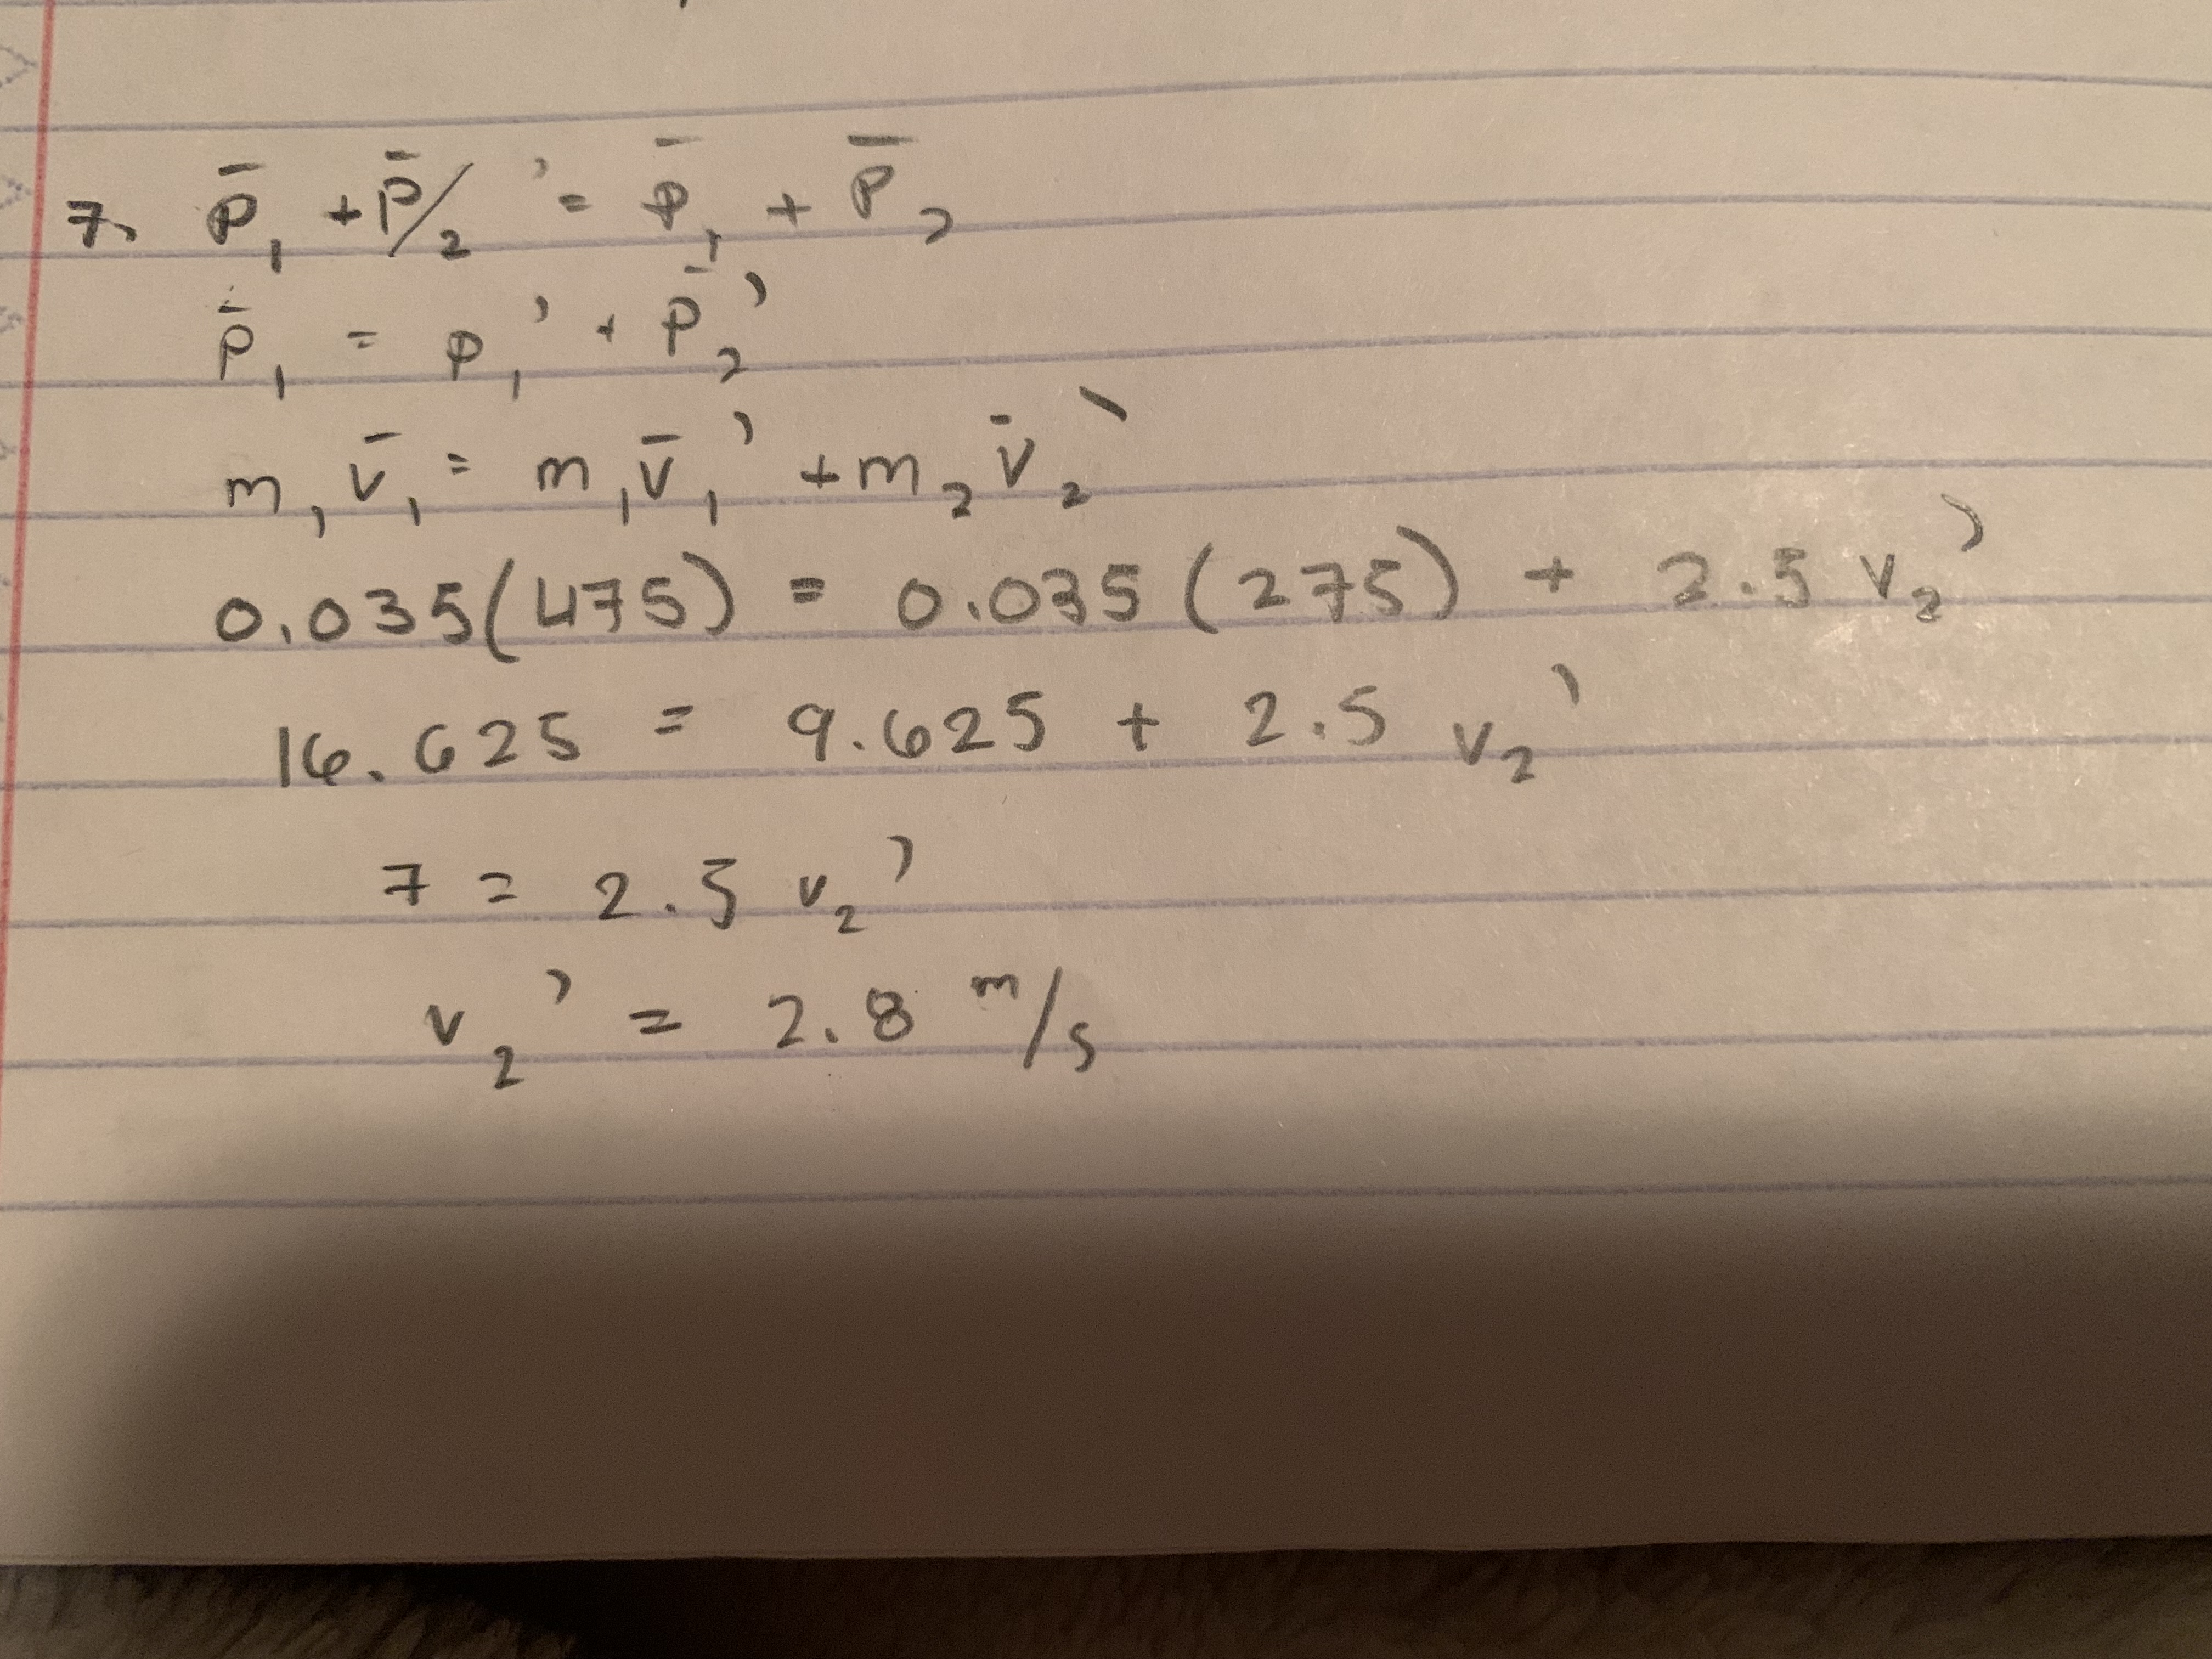 7. p̄₁ + p̄/₂ ' = p̄₁ + p̄₂
p̄₁ = p₁' + p̄₂'
m₁v̄₁ = m₁v̄₁' + m₂v̄₂'
0.035(475) = 0.035(275) + 2.5 v₂'
16.625 = 9.625 + 2.5 v₂'
7 = 2.5 v₂'
v₂' = 2.8 m/s